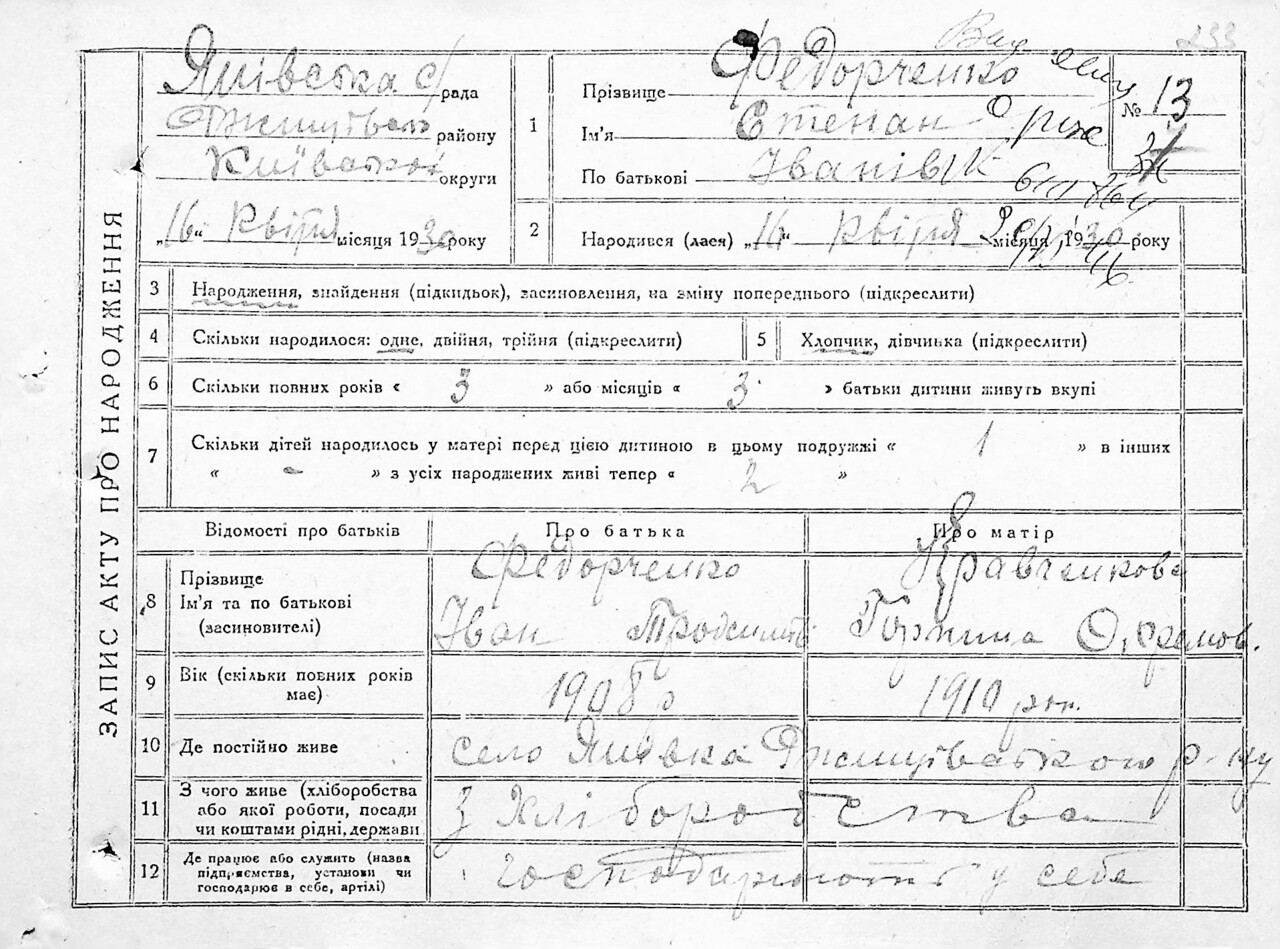 233
Янівська с/рада
району
Київської округи
„16“ Квітня місяця 1930 року
1
Прізвище Федорченко
Ім'я Степан
По батькові Іванів
№ 13
2
Народився (лася) „16“ Квітня місяця 1930 року
ЗАПИС АКТУ ПРО НАРОДЖЕННЯ
3 Народження, знайдення (підкидьок), засиновлення, на зміну попереднього (підкреслити)
4 Скільки народилося: одне, двійня, трійня (підкреслити)
5 Хлопчик, дівчинка (підкреслити)
6 Скільки повних років « 3 » або місяців « 3 » батьки дитини живуть вкупі
7 Скільки дітей народилось у матері перед цією дитиною в цьому подружжі « 1 » в інших
« - » з усіх народжених живі тепер « 2 »
Відомості про батьків Про батька Про матір
8 Прізвище
Ім'я та по батькові
(засиновителі)
Федорченко
Іван
Кравченкова
9 Вік (скільки повних років
має)
1908 р
1910 рок.
10 Де постійно живе
село Янівка р-ну
11 З чого живе (хліборобства
або якої роботи, посади
чи коштами рідні, держави
З Хліборобства
12 Де працює або служить (назва
підприємства, установи чи
господарює в себе, артілі)
господарюють у себе